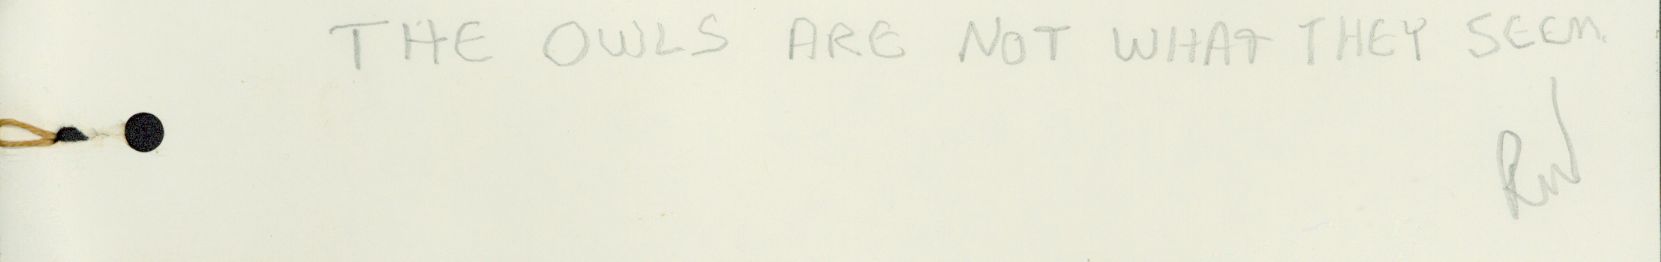 THE OWLS ARE NOT WHAT THEY SEEM.